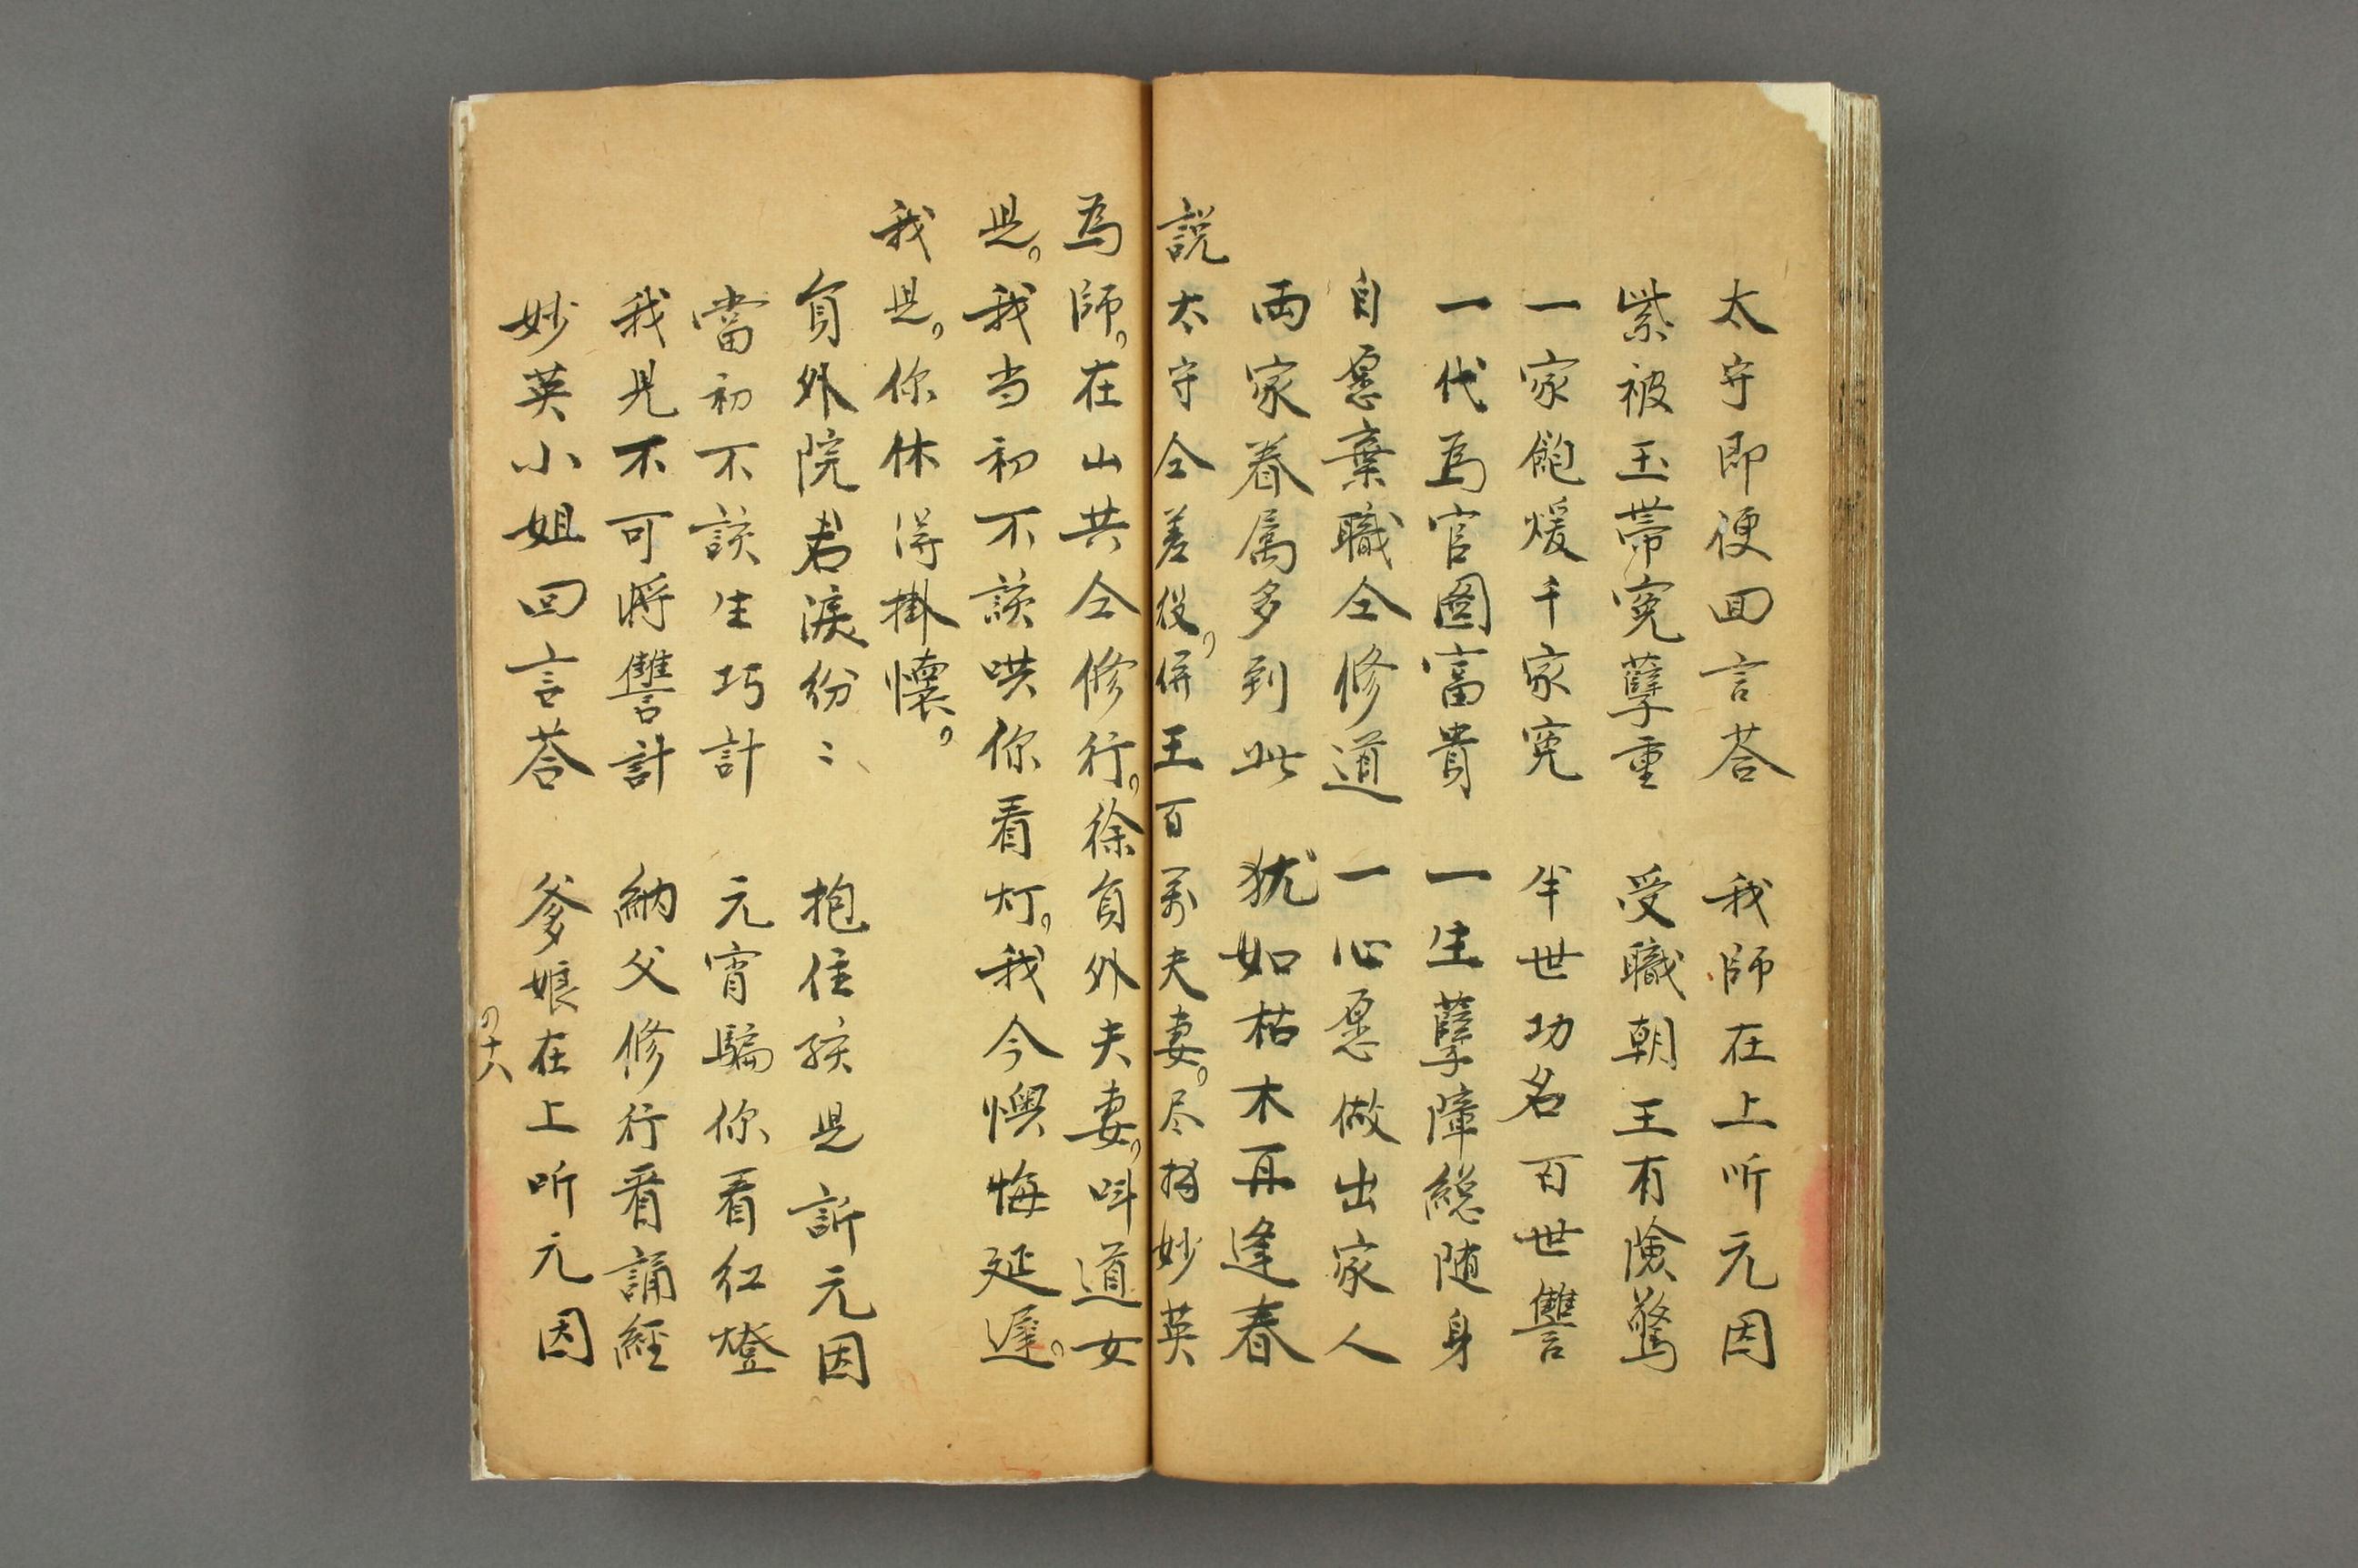 太守即便回言荅　我師在上听元因
紫被玉帯寃孽重　受職朝王有險驚
一家飽煖千家寃　半世功名百世讐
一代為官圖富貴　一生孽障緫随身
自愿棄職仝修道　一心愿做出家人
両家眷属多到此　犹如枯木再逢春
説太守仝差役。併王百萬夫妻。尽拜妙英
為師。在山共仝修行。徐員外夫妻。呌道女
児。我当初不該哄你看灯。我今懊悔延遲。
我児。你休得掛懷。
員外院君淚紛〻　抱住孩児訴元因
當初不該生巧計　元宵騙你看红燈
我児不可將讐計　納父修行看誦經
妙英小姐回言荅　爹娘在上听元因
四十八